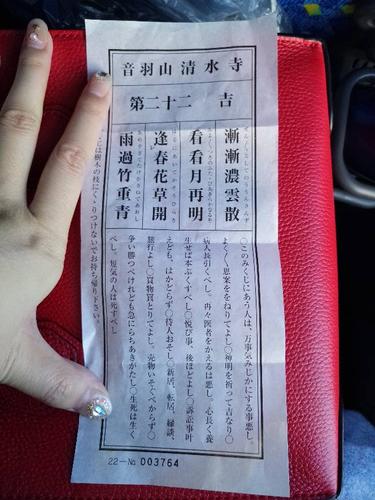 音羽山清水寺
第二十二 吉
漸漸濃雲散
看看月再明
逢春花草開
雨過竹重青
〇このみくじにあう人は、万事気みじかにする事悪し。
よくよく思案をねりてよし〇神明を祈って吉なり〇
病人長引くべし、再々医者をかえるは悪し。心長く養
生せば本ぷくすべし〇悦び事、後ほどよし〇訴訟事叶
えども、はかどらず〇待人おそし〇新居、転居、縁談、
旅行よし〇買物買とりてよし、売物いそぐべからず〇
争い勝つべけれども急にらちあきがたし〇生死は生く
べし。短気の人は死すべし
樹木の枝にくくりつけないでお持ち帰り下さい。
22—No 003764